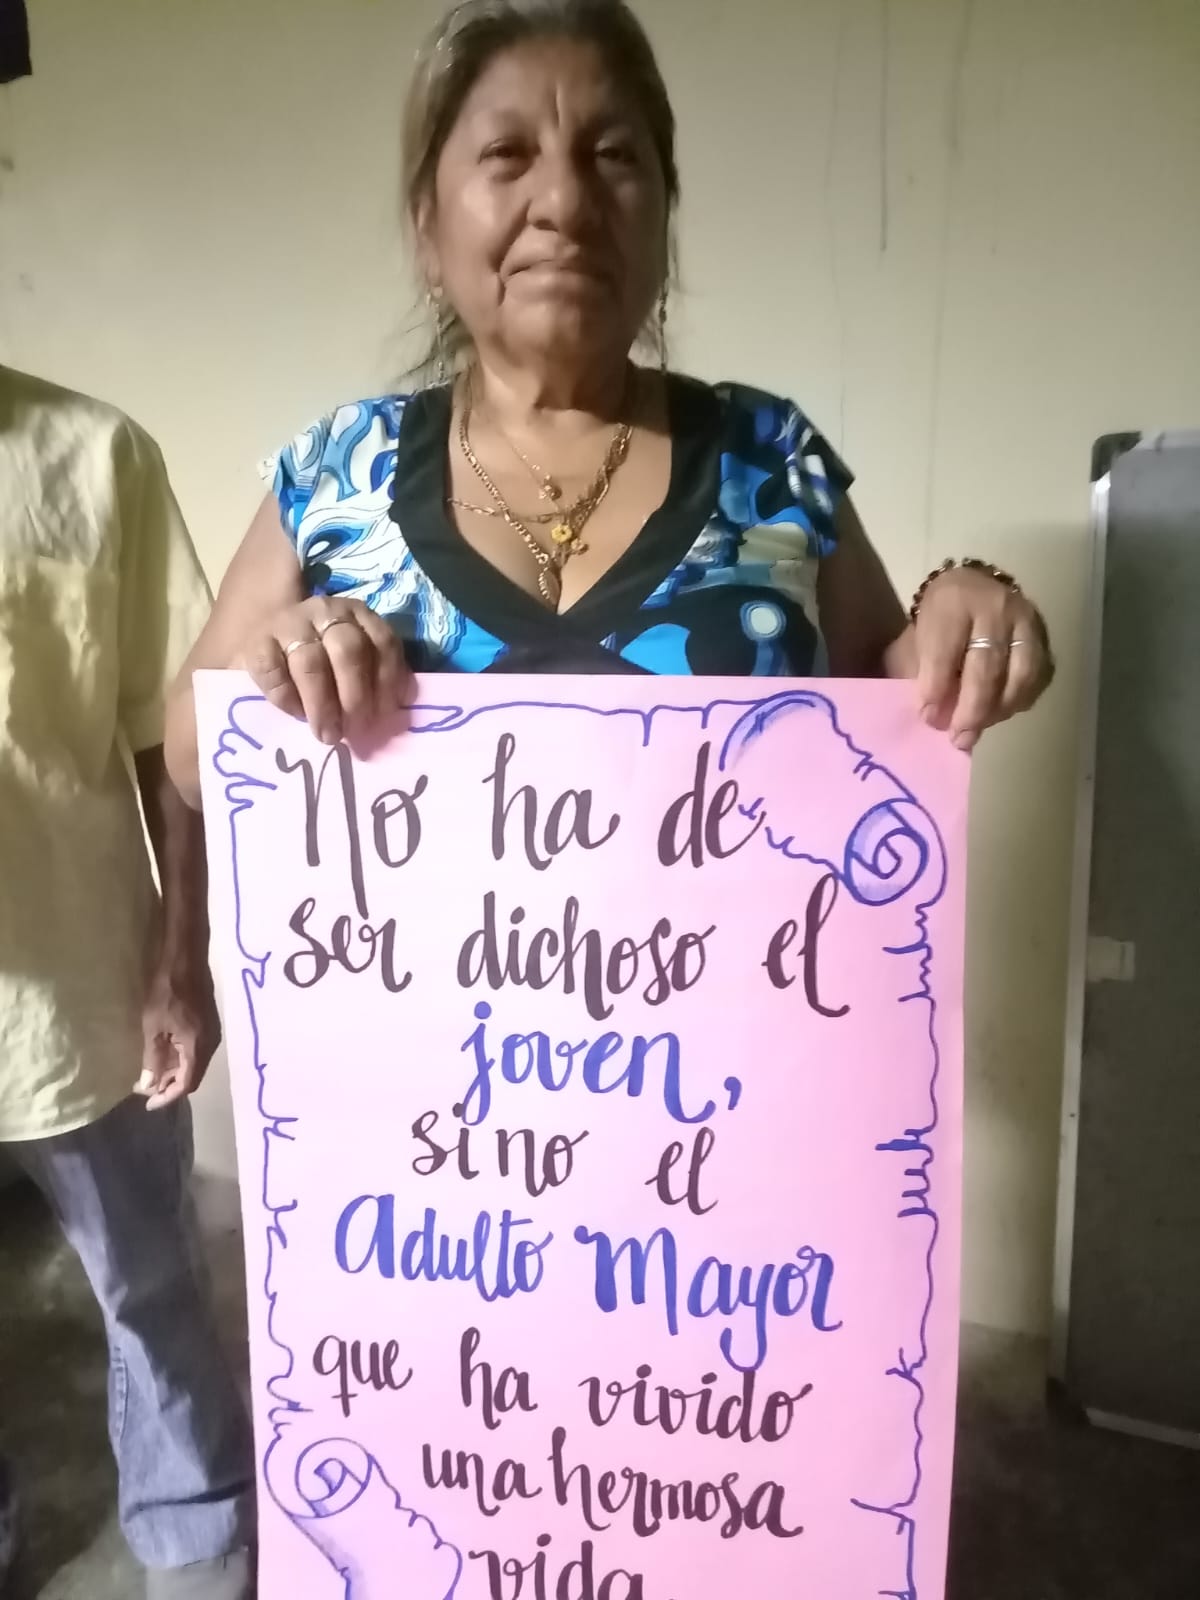 No ha de
ser dichoso el
joven,
sino el
Adulto Mayor
que ha vivido
una hermosa
vida.